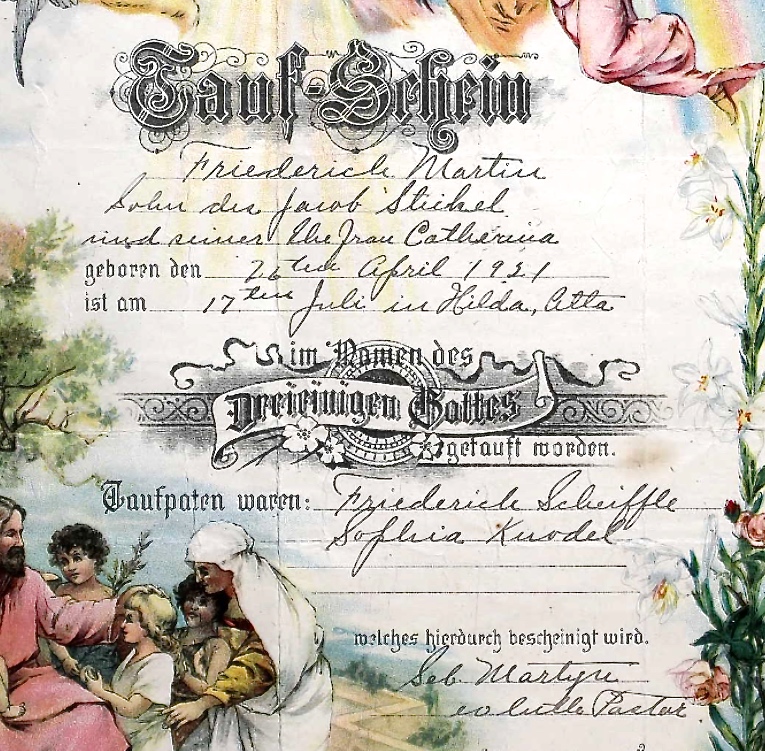 Tauf-Schein
Friederich Martin
Sohn des Jacob Stickel
und seiner Ehefrau Catherina
geboren den 26ten April 1921
ist am 17ten Juli in Hilda, Alta
im Namen des
Dreieinigen Gottes
getauft worden.
Taufpaten waren: Friederich Scheiffle
Sophia Knodel
welches hierdurch bescheinigt wird.
Seb Martyn
Pastor